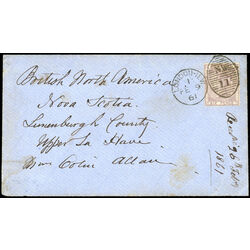 British North America
Nova Scotia
Lunenburgh County
Upper La Have
Mrs Colin Allan
LONDON-N.W
1
61
N.W
11
1861